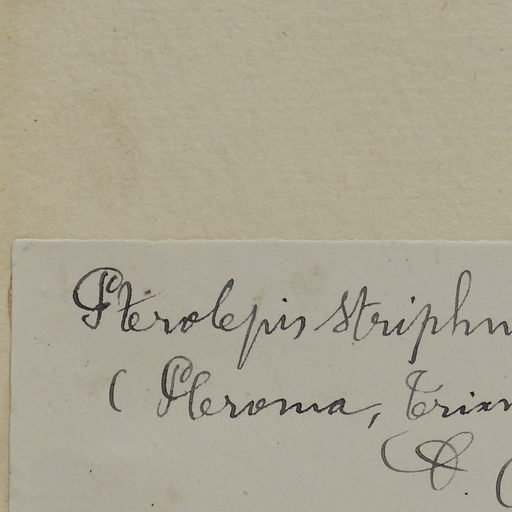 Pterolepis striphn
( Pleroma, Trian